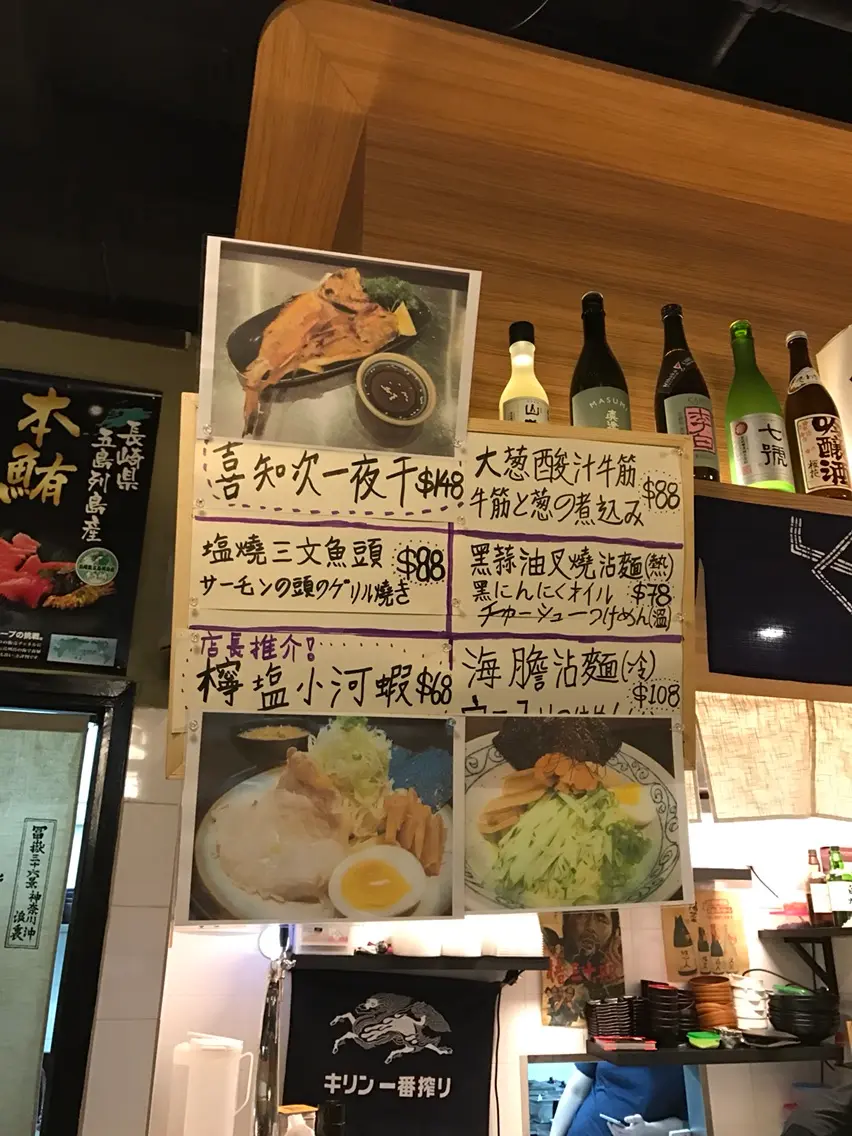 本鮪
長崎県
五島列島産
ープの挑戦。
喜知次一夜干$148
塩燒三文魚頭 $88
サーモンの頭のグリル焼き
店長推介!
檸塩小河蝦$68
大葱酸汁牛筋 $88
牛筋と葱の煮込み
黑蒜油叉燒沾麵(熱)
黑にんにくオイル $78
チャーシューつけめん(温)
海膽沾麵(冷) $108
MASUMI
李白
七號
吟醸酒
冨嶽三十六景 神奈川沖
浪裏
キリン一番搾り